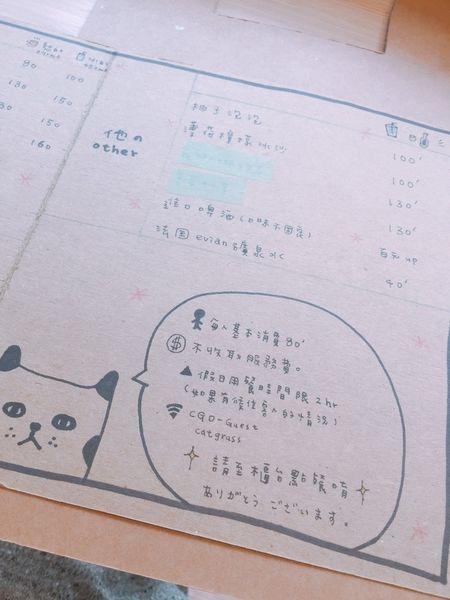 80 100
130 150
150
160
他の
other
柚子泡泡 100'
薄荷檸檬冰沙 100'
130'
130'
進口啤酒(口味不固定) 百元up
法國 evian 礦泉水 90'
每人基本消費80'
$ 不收取服務費。
▲ 假日用餐時間限2hr
(如果有候位客人的情況)
CGD-Guest
catgrass
請至櫃台點餐唷
ありがとうございます。